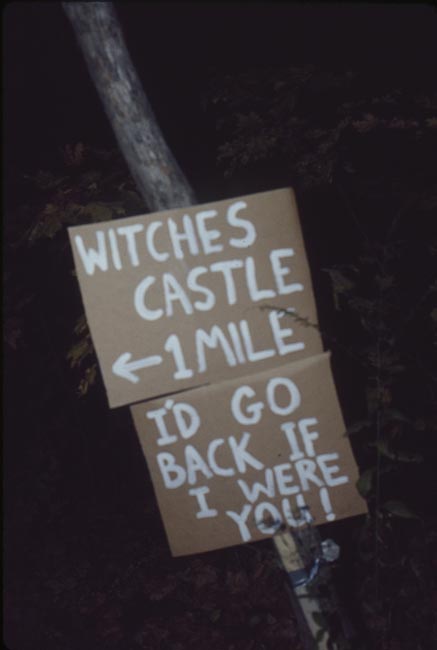 WITCHES
CASTLE
←1 MILE
I'D GO
BACK IF
I WERE
YOU!